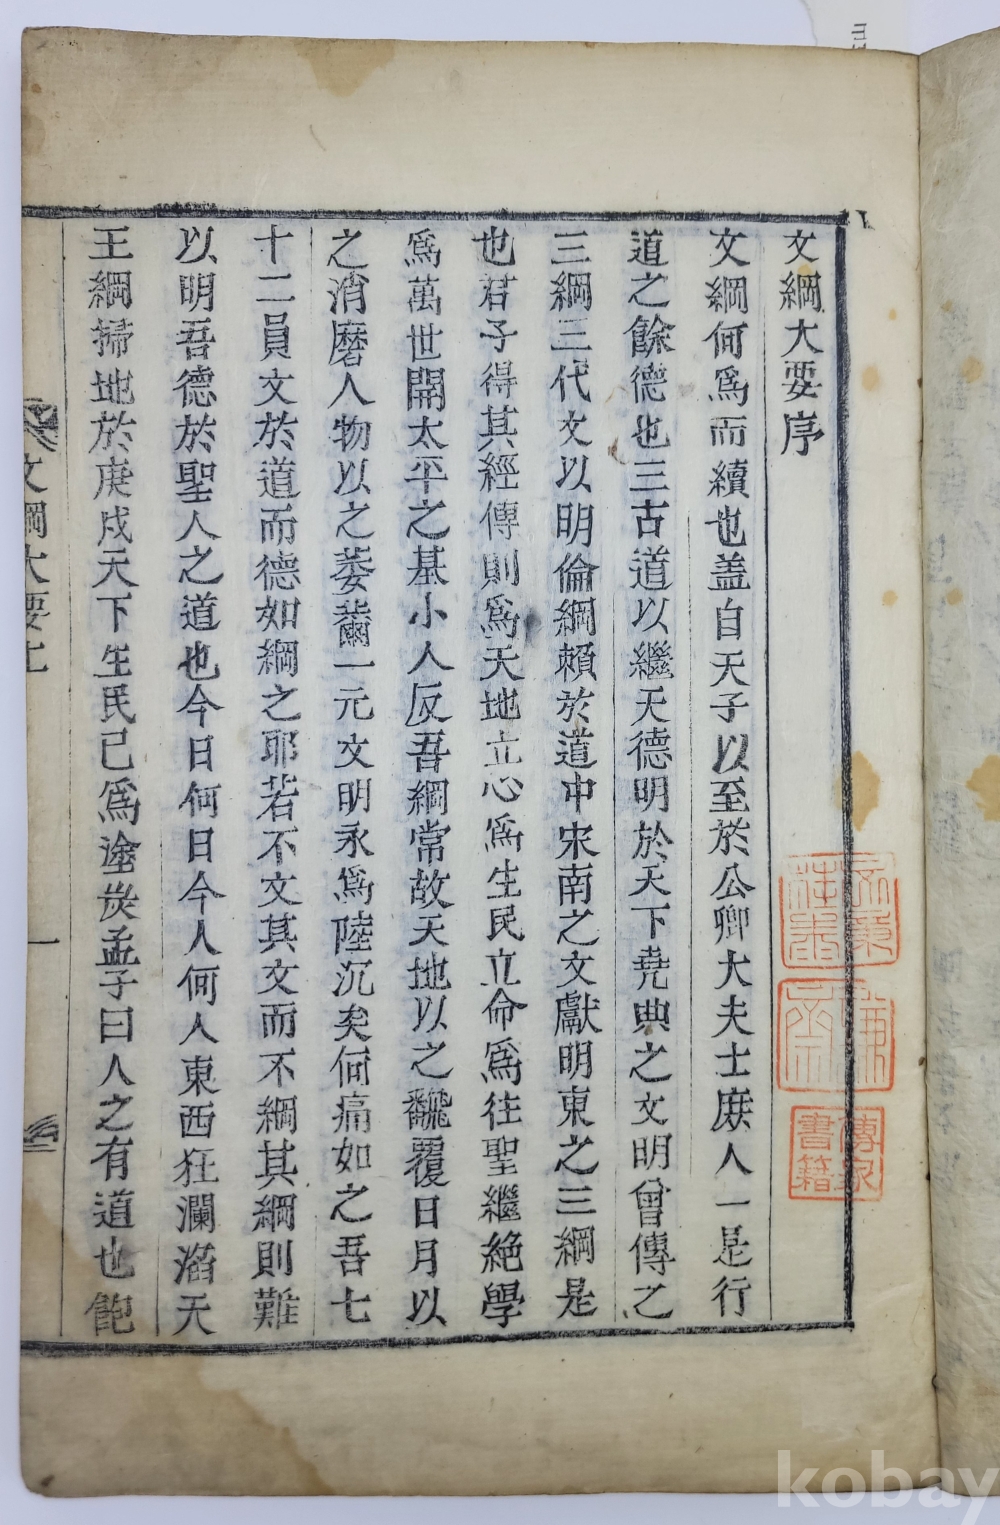 文綱大要序
文綱何爲而續也盖自天子以至於公卿大夫士庶人一是行
道之餘德也三古道以繼天德明於天下堯典之文明曾傳之
三綱三代文以明倫綱賴於道中宋南之文獻明東之三綱是
也君子得其經傳則爲天地立心爲生民立命爲往聖繼絶學
爲萬世開太平之基小人反吾綱常故天地以之飜覆日月以
之消磨人物以之萎薾一元文明永爲陸沉矣何痛如之吾七
十二員文於道而德如綱之耶若不文其文而不綱其綱則難
以明吾德於聖人之道也今日何日今人何人東西狂瀾滔天
王綱掃地於庚戌天下生民已爲塗炭孟子曰人之有道也飽
文綱大要上
一
傳家書籍
kobay